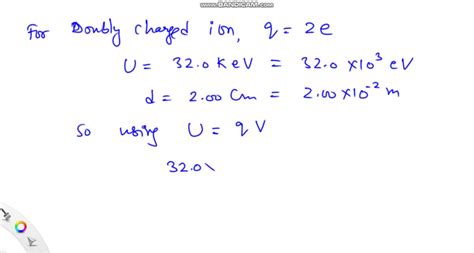 www.BANDICAM.com
For Doubly charged ion, q = 2e
U = 32.0 KeV = 32.0 ×10³ eV
d = 2.00 Cm = 2.00 ×10⁻² m
So using U = qV
32.0\